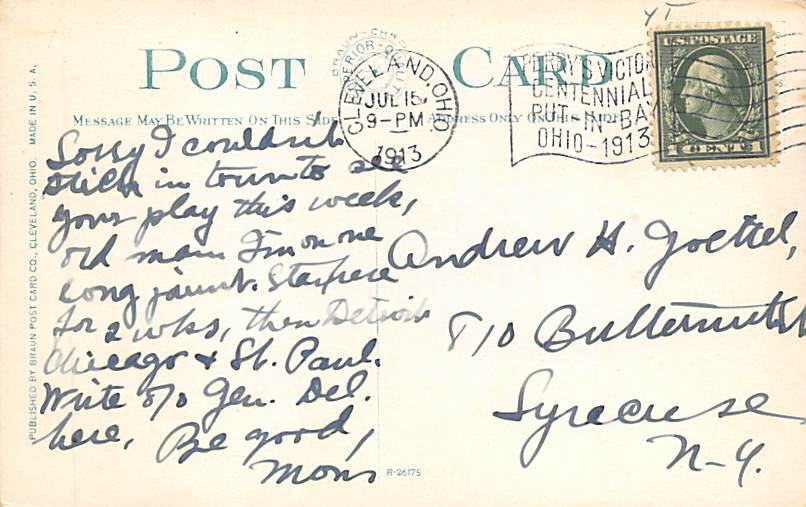 POST CARD
MESSAGE MAY BE WRITTEN ON THIS SIDE
ADDRESS ONLY ON THIS SIDE
CLEVELAND, OHIO.
JUL 15
9-PM
1913
PERRY'S VICTO
CENTENNIAL
PUT-IN-BAY
OHIO-1913
U.S. POSTAGE
1 CENT 1
Sorry I couldn't
stick in town to see
your play this week,
old man I'm on one
long jaunt. Stay here
for 2 wks, then Detroit
Chicago & St. Paul.
Write c/o Gen. Del.
here, Be good,
Mons
Andrew H. Goettel,
810 Butternut St
Syracuse
N-Y.
PUBLISHED BY BRAUN POST CARD CO., CLEVELAND, OHIO. MADE IN U.S.A.
R-26175